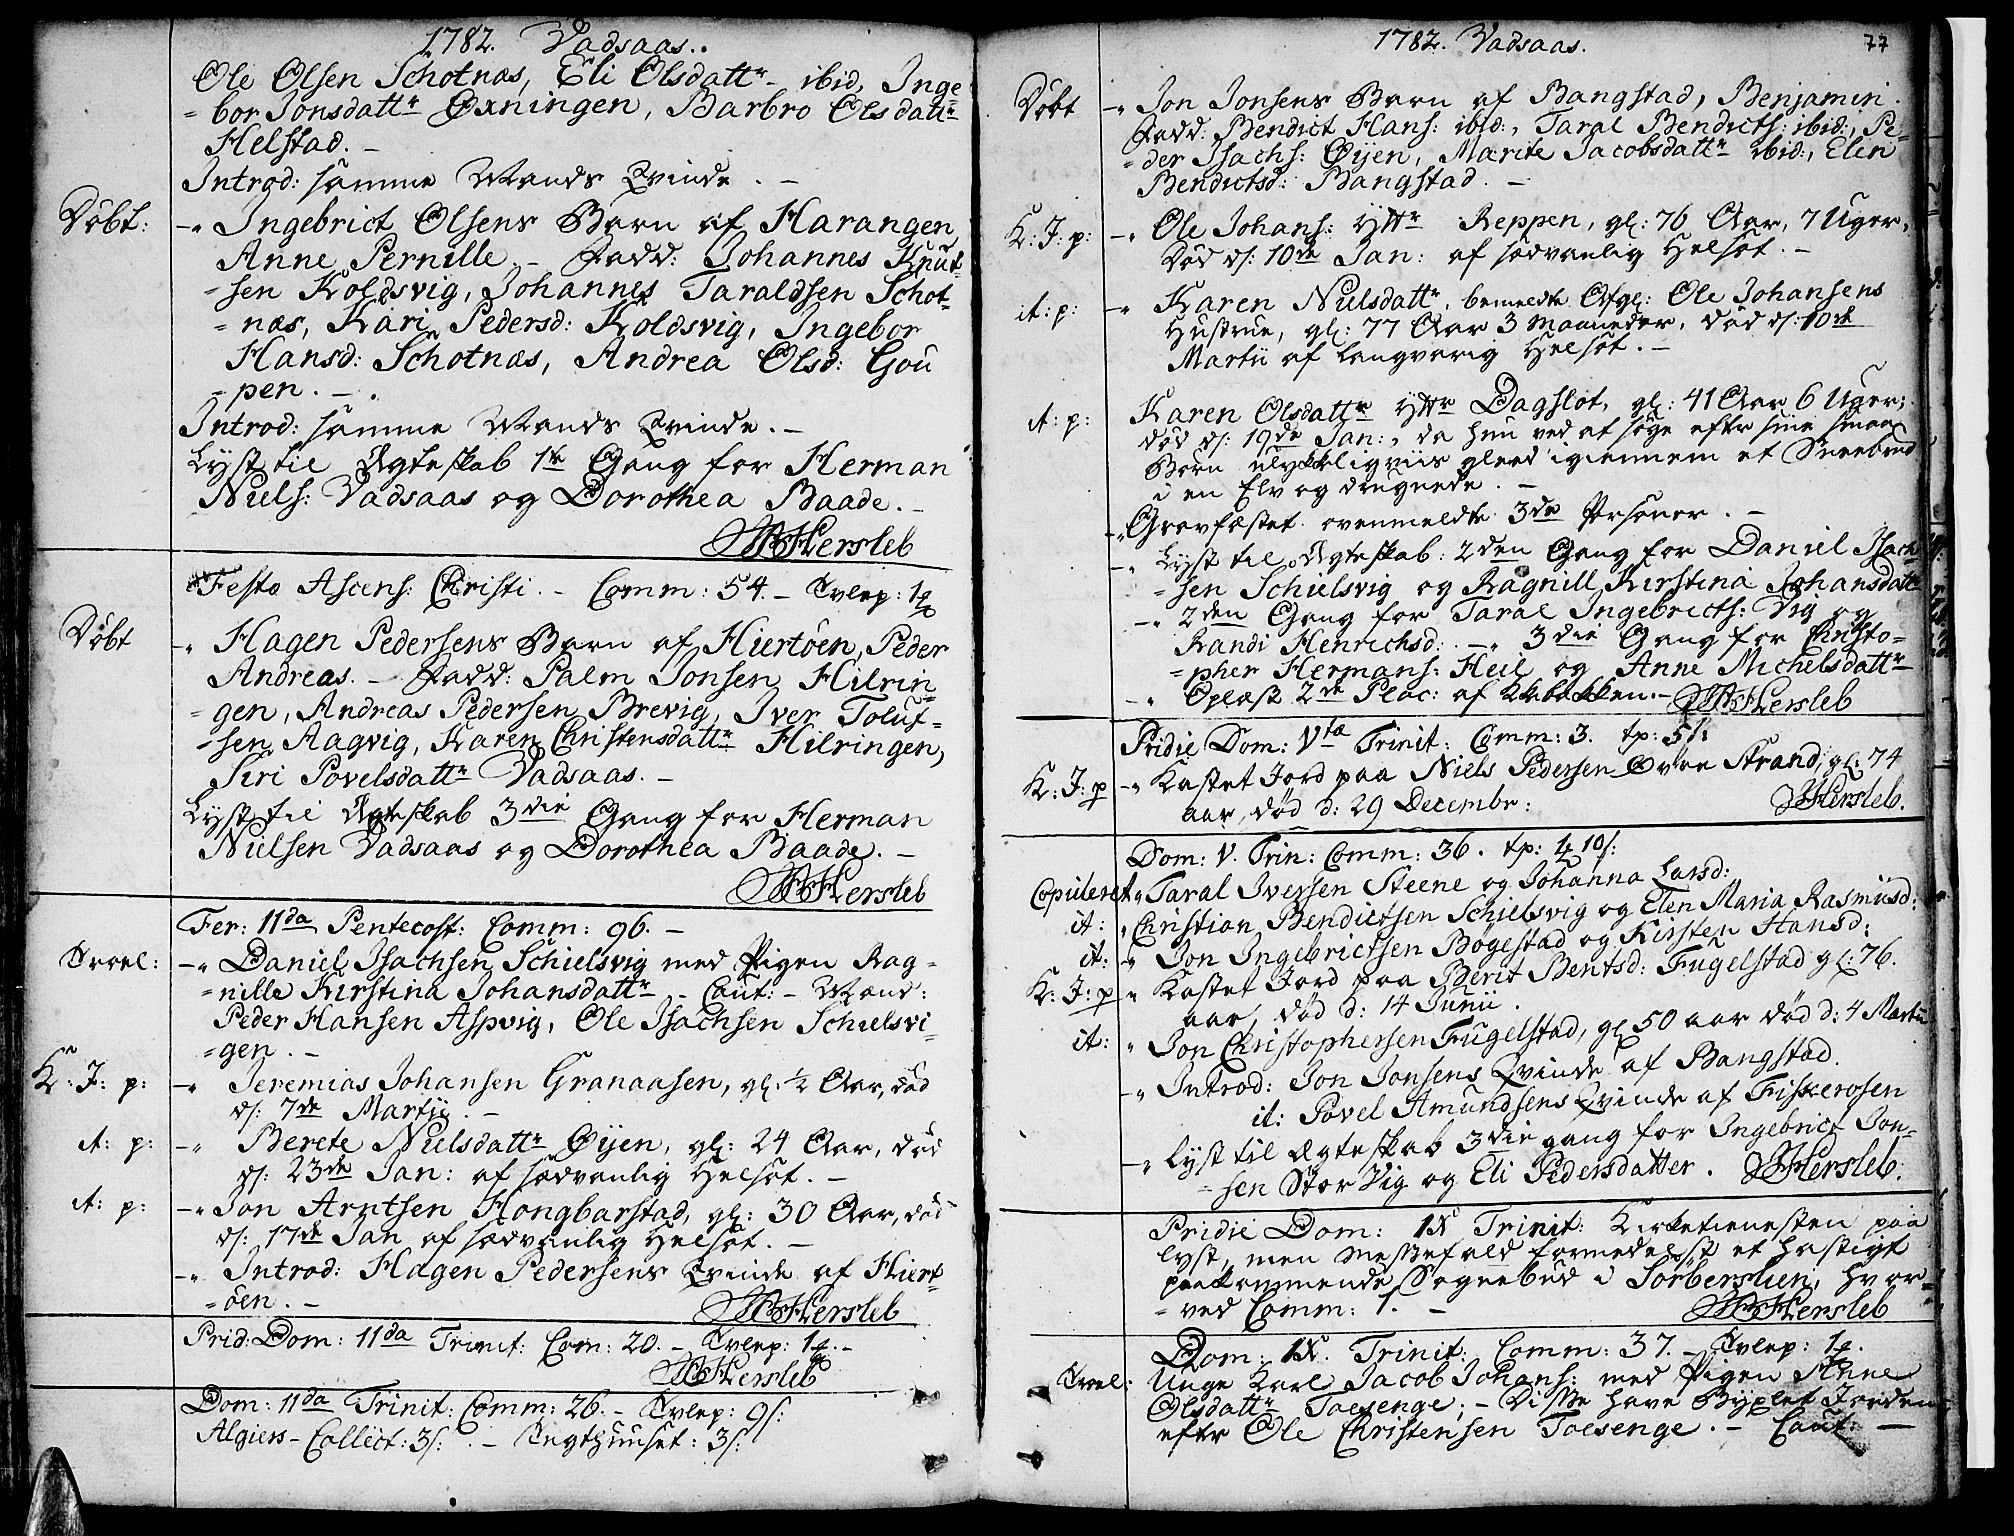 1782. Vadsaas.
Ole Olsen Schotnæs, Eli Olsdattr ibid, Inge
=bor Jonsdattr Øxningen, Barbro Olsdattr
Helstad. -
Introd: samme Mands Qvinde. -
Døbt: -„ Ingebrict Olsens Barn af Harangen
Anne Pernille. - Fadd: Johannes Knut-
=sen Koldsvig, Johannes Taraldsen Schot-
=næs, Kari Pedersd: Koldsvig, Ingebor
Hansd: Schotnæs, Andrea Olsd: Gou
=pen. -
Introd: samme Mands Qvinde. -
Lyst til Ægteskab 1te Gang for Herman
Niels: Vadsaas og Dorothea Baade. -
Hersleb
Festo Ascens: Christi. - Comm: 54. - Tvlep: 1
Døbt -„ Hagen Pedersens Barn af Hiertøen, Peder
Andreas. - Fadd: Palm Jonsen Hilrin-
=gen, Andreas Pedersen Brevig, Iver Toluf-
=sen Aagvig, Karen Christensdattr Hilringen,
Siri Povelsdattr Vadsaas. -
Lyst til Ægteskab 3die Gang for Herman
Nielsen Vadsaas og Dorothea Baade. -
Hersleb
Fer: 11da Pentecost: Comm: 96. -
Trol: -„ Daniel Isachsen Schielsvig med Pigen Rag-
=nille Kirstina Johansdattr - Caut: - Mænd:
Peder Hansen Aspvig, Ole Isachsen Schielsvi-
=gen. -
K: J: p: -„ Jeremias Johansen Granaasen, gl: ½ Aar, død
d: 7de Martii. -
it: p: -„ Berete Nielsdattr Øijen, gl: 24 Aar, død
d: 23de Jan: af sædvanlig Helsot. -
it: p: -„ Jon Arntsen Hongbarstad, gl: 30 Aar, død
d: 17de Jan af sædvanlig Helsot. -
-„ Introd: Hagen Pedersens Qvinde af Hiert-
=øen. -
Hersleb
Prid: Dom: 11da Trinit: Com: 20. - Tvlep: 1
Hersleb
Dom: 11da Trinit: Comm: 26. - Tvlep: 9s:
Algiers - Collect: 3s: - Tugthuuset: 3s:
1782. Vadsaas. 77
Døbt -„ Jon Jonsens Barn af Bangstad, Benjamin.
Fadd: Bendict Hans: ibid:, Taral Bendicts: ibid:, Pe-
=der Isachs: Øijen, Marite Jacobsdattr ibid:, Elen
Bendictsd: Bangstad. -
K: J: p: -„ Ole Johans: Yttr Reppen, gl: 76 Aar, 7 Uger,
død d: 10de Jan: af sædvanlig Helsot. -
it: p: -„ Karen Nielsdattr, bemeldte Afgl: Ole Johansens
Hustrue, gl: 77 Aar 3 Maaneder, død d: 10de
Martii af langvarig Helsot. -
it: p: Karen Olsdattr Yttr Dagslot, gl: 41 Aar 6 Uger;
død d: 19de Jan:, da hun ved at søge efter sine smaa
Børn ulykkeligviis gleed igiennem et Sneebræd
i en Elv og drugnede. -
-„ Gravfæstet ovenmeldte 3de Personer. -
-„ Lyst til Ægteskab: 2den Gang for Daniel Isach-
=sen Schielsvig og Ragnill Kirstina Johansdattr
-„ 2den Gang for Taral Ingebricts: Vig og
Randi Henrichsd: -„ 3die Gang for Christo=
=pher Hermans: Heil og Anne Michelsdattr
-„ Oplæst 2de Plac: af Prædikestolen. - Hersleb
Pridie Dom: Vta Trinit: Comm: 3. tp: 5s:
K: J: p -„ Kastet Jord paa Niels Pedersen Øvre Strand, gl: 74
aar, død d: 29 Decembr:
Hersleb.
Dom: V. Trin: Comm: 36. tp: 10s:
Copuleret „ Taral Iversen Steene og Johanna Larsd:
it: „ Christian Bendictsen Schielsvig og Elen Maria Rasmusd:
it: „ Jon Ingebrictsen Bøgestad og Kirsten Hansd:
K: J: p „ Kastet Jord paa Berit Bentsd: Fugelstad gl: 76.
aar, død d: 14 Junii.
it: „ Jon Christophersen Fugelstad, gl 50 aar død d: 4 Martii
-„ Introd: Jon Jonsens Qvinde af Bangstad.
it: Povel Amundsens Qvinde af Fiskerosen
-„ Lyst til Ægteskab 3die gang for Ingebrict Jon-
=sen StorVig og Eli Pedersdatter. Hersleb.
Pridie Dom: IX Trinit: Kirketienesten paa
lyst, men Messefald formedelst et hastigt
paakommende Sognebud i Sørberslien, hvor-
=ved Comm: 1. -
Hersleb
Dom: IX. Trinit: Comm: 37. - Tvlep: 1
Trol: Unge Karl Jacob Johans: med Pigen Anne
Olsdattr Toesenge; - Disse have Byxlet Jorden
efter Ole Christensen Toesenge. - Caut: -